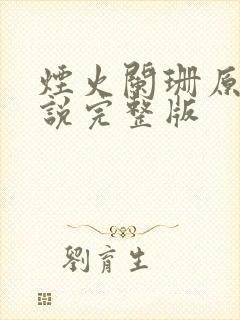 煙火闌珊原
說完整版
劉育生